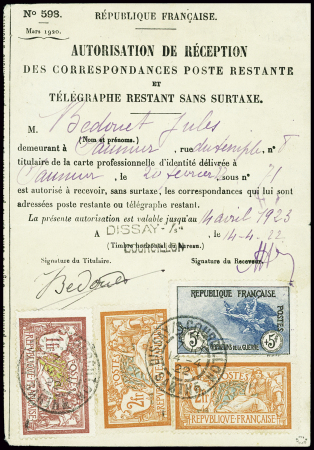 No 598.
RÉPUBLIQUE FRANÇAISE.
Mars 1920.
AUTORISATION DE RÉCEPTION
DES CORRESPONDANCES POSTE RESTANTE
ET
TÉLÉGRAPHE RESTANT SANS SURTAXE.
M. Bedouet Jules
(Nom et prénoms.)
demeurant à Saumur, rue du temple, n° 8
titulaire de la carte professionnelle d'identité délivrée à
Saumur, le 20 février, sous n° 71
est autorisé à recevoir, sans surtaxe, les correspondances qui lui sont
adressées poste restante ou télégraphe restant.
La présente autorisation est valable jusqu'au 14 avril 1923
A DISSAY-s/s COURCILLON, le 14-4-22
(Timbre horizontal du Bureau.)
Signature du Titulaire.
Signature du Receveur.
Bedouet
RÉPUBLIQUE FRANÇAISE
POSTES
ORPHELINS DE LA GUERRE
1F
2F
2F